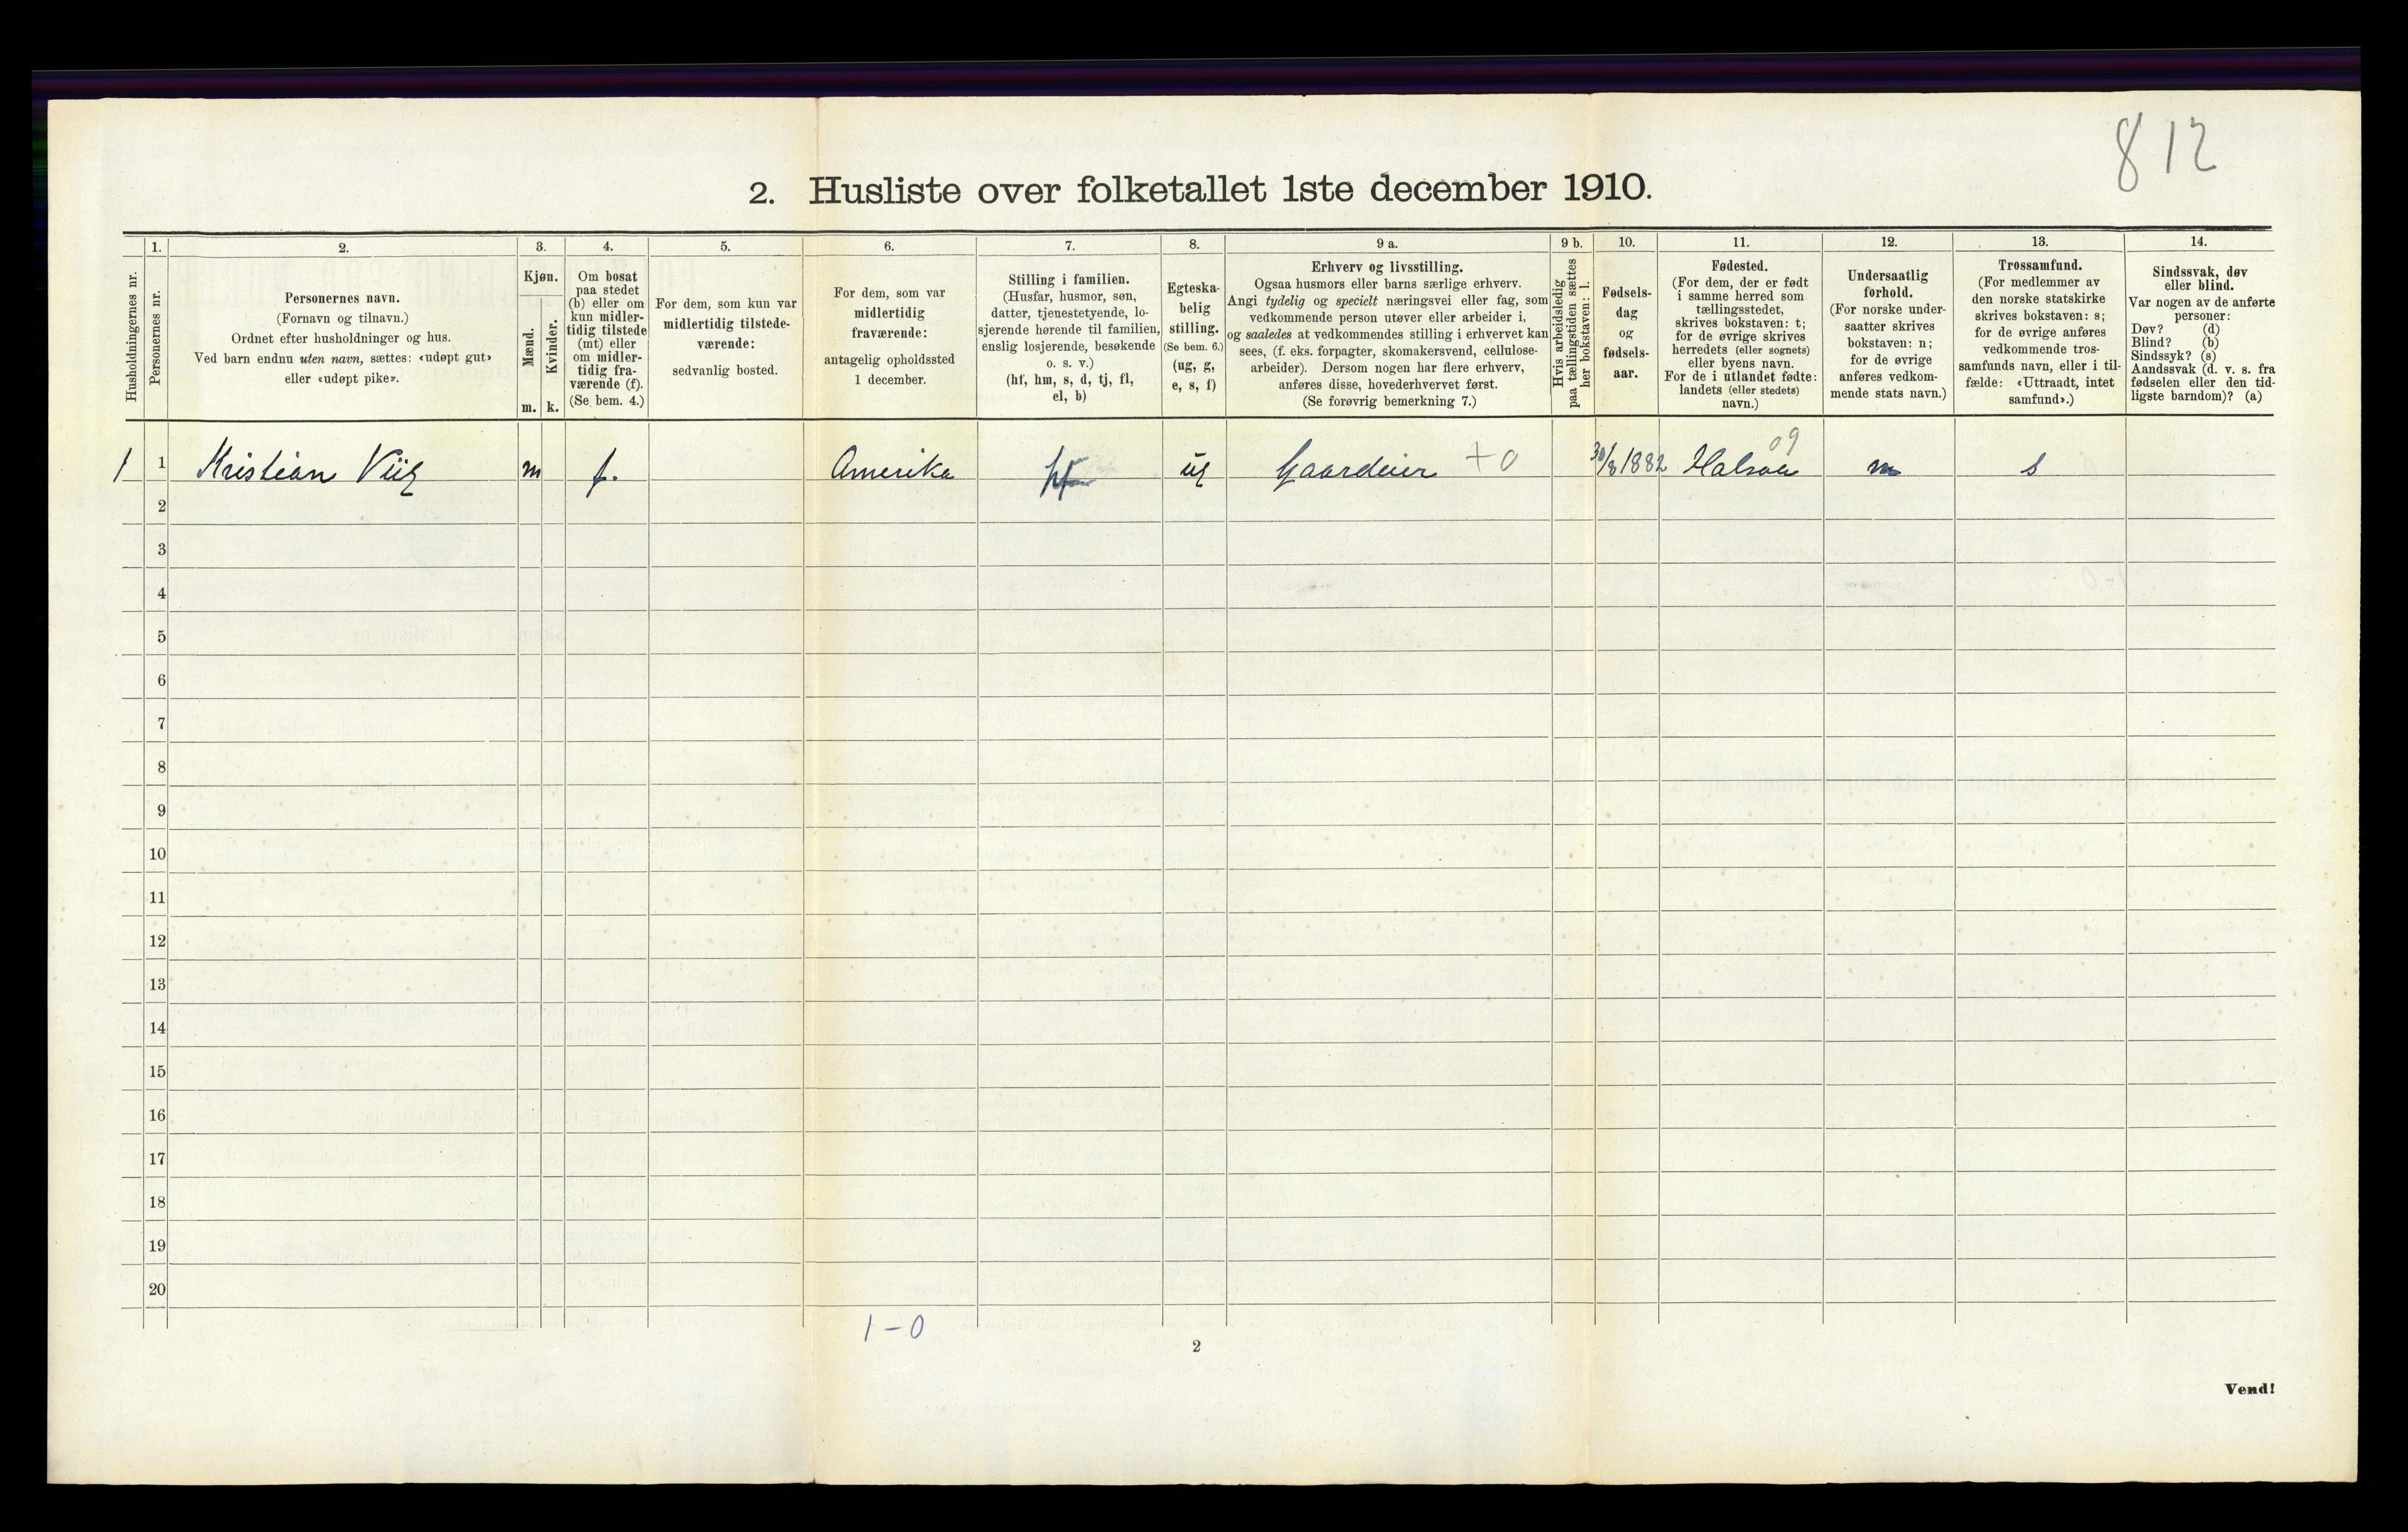 812
2. Husliste over folketallet 1ste december 1910.
Husholdningernes nr.
1.
Personernes nr.
2.
Personernes navn.
(Fornavn og tilnavn.)
Ordnet efter husholdninger og hus.
Ved barn endnu uten navn, sættes: «udøpt gut»
eller «udøpt pike».
3.
Kjøn.
Mænd.
Kvinder.
m. k.
4.
Om bosat
paa stedet
(b) eller om
kun midler-
tidig tilstede
(mt) eller
om midler-
tidig fra-
værende (f).
(Se bem. 4.)
5.
For dem, som kun var
midlertidig tilstede-
værende:
sedvanlig bosted.
6.
For dem, som var
midlertidig
fraværende:
antagelig opholdssted
1 december.
7.
Stilling i familien.
(Husfar, husmor, søn,
datter, tjenestetyende, lo-
sjerende hørende til familien,
enslig losjerende, besøkende
o. s. v.)
(hf, hm, s, d, tj, fl,
el, b)
8.
Egteska-
belig
stilling.
(Se bem. 6.)
(ug, g,
e, s, f)
9 a.
Erhverv og livsstilling.
Ogsaa husmors eller barns særlige erhverv.
Angi tydelig og specielt næringsvei eller fag, som
vedkommende person utøver eller arbeider i,
og saaledes at vedkommendes stilling i erhvervet kan
sees, (f. eks. forpagter, skomakersvend, cellulose-
arbeider). Dersom nogen har flere erhverv,
anføres disse, hovederhvervet først.
(Se forøvrig bemerkning 7.)
9 b.
Hvis arbeidsledig
paa tællingstiden sættes
her bokstaven: l.
10.
Fødsels-
dag
og
fødsels-
aar.
11.
Fødested.
(For dem, der er født
i samme herred som
tællingsstedet,
skrives bokstaven: t;
for de øvrige skrives
herredets (eller sognets)
eller byens navn.
For de i utlandet fødte:
landets (eller stedets)
navn.)
12.
Undersaatlig
forhold.
(For norske under-
saatter skrives
bokstaven: n;
for de øvrige
anføres vedkom-
mende stats navn.)
13.
Trossamfund.
(For medlemmer av
den norske statskirke
skrives bokstaven: s;
for de øvrige anføres
vedkommende tros-
samfunds navn, eller i til-
fælde: «Uttraadt, intet
samfund».)
14.
Sindssvak, døv
eller blind.
Var nogen av de anførte
personer:
Døv? (d)
Blind? (b)
Sindssyk? (s)
Aandssvak (d. v. s. fra
fødselen eller den tid-
ligste barndom)? (a)
1 1 Kristian Viig m f. Amerika hf ug Gaardeier +0 30/8 1882 Halsaa 09 n s
2
3
4
5
6
7
8
9
10
11
12
13
14
15
16
17
18
19
20
1-0
2
Vend!